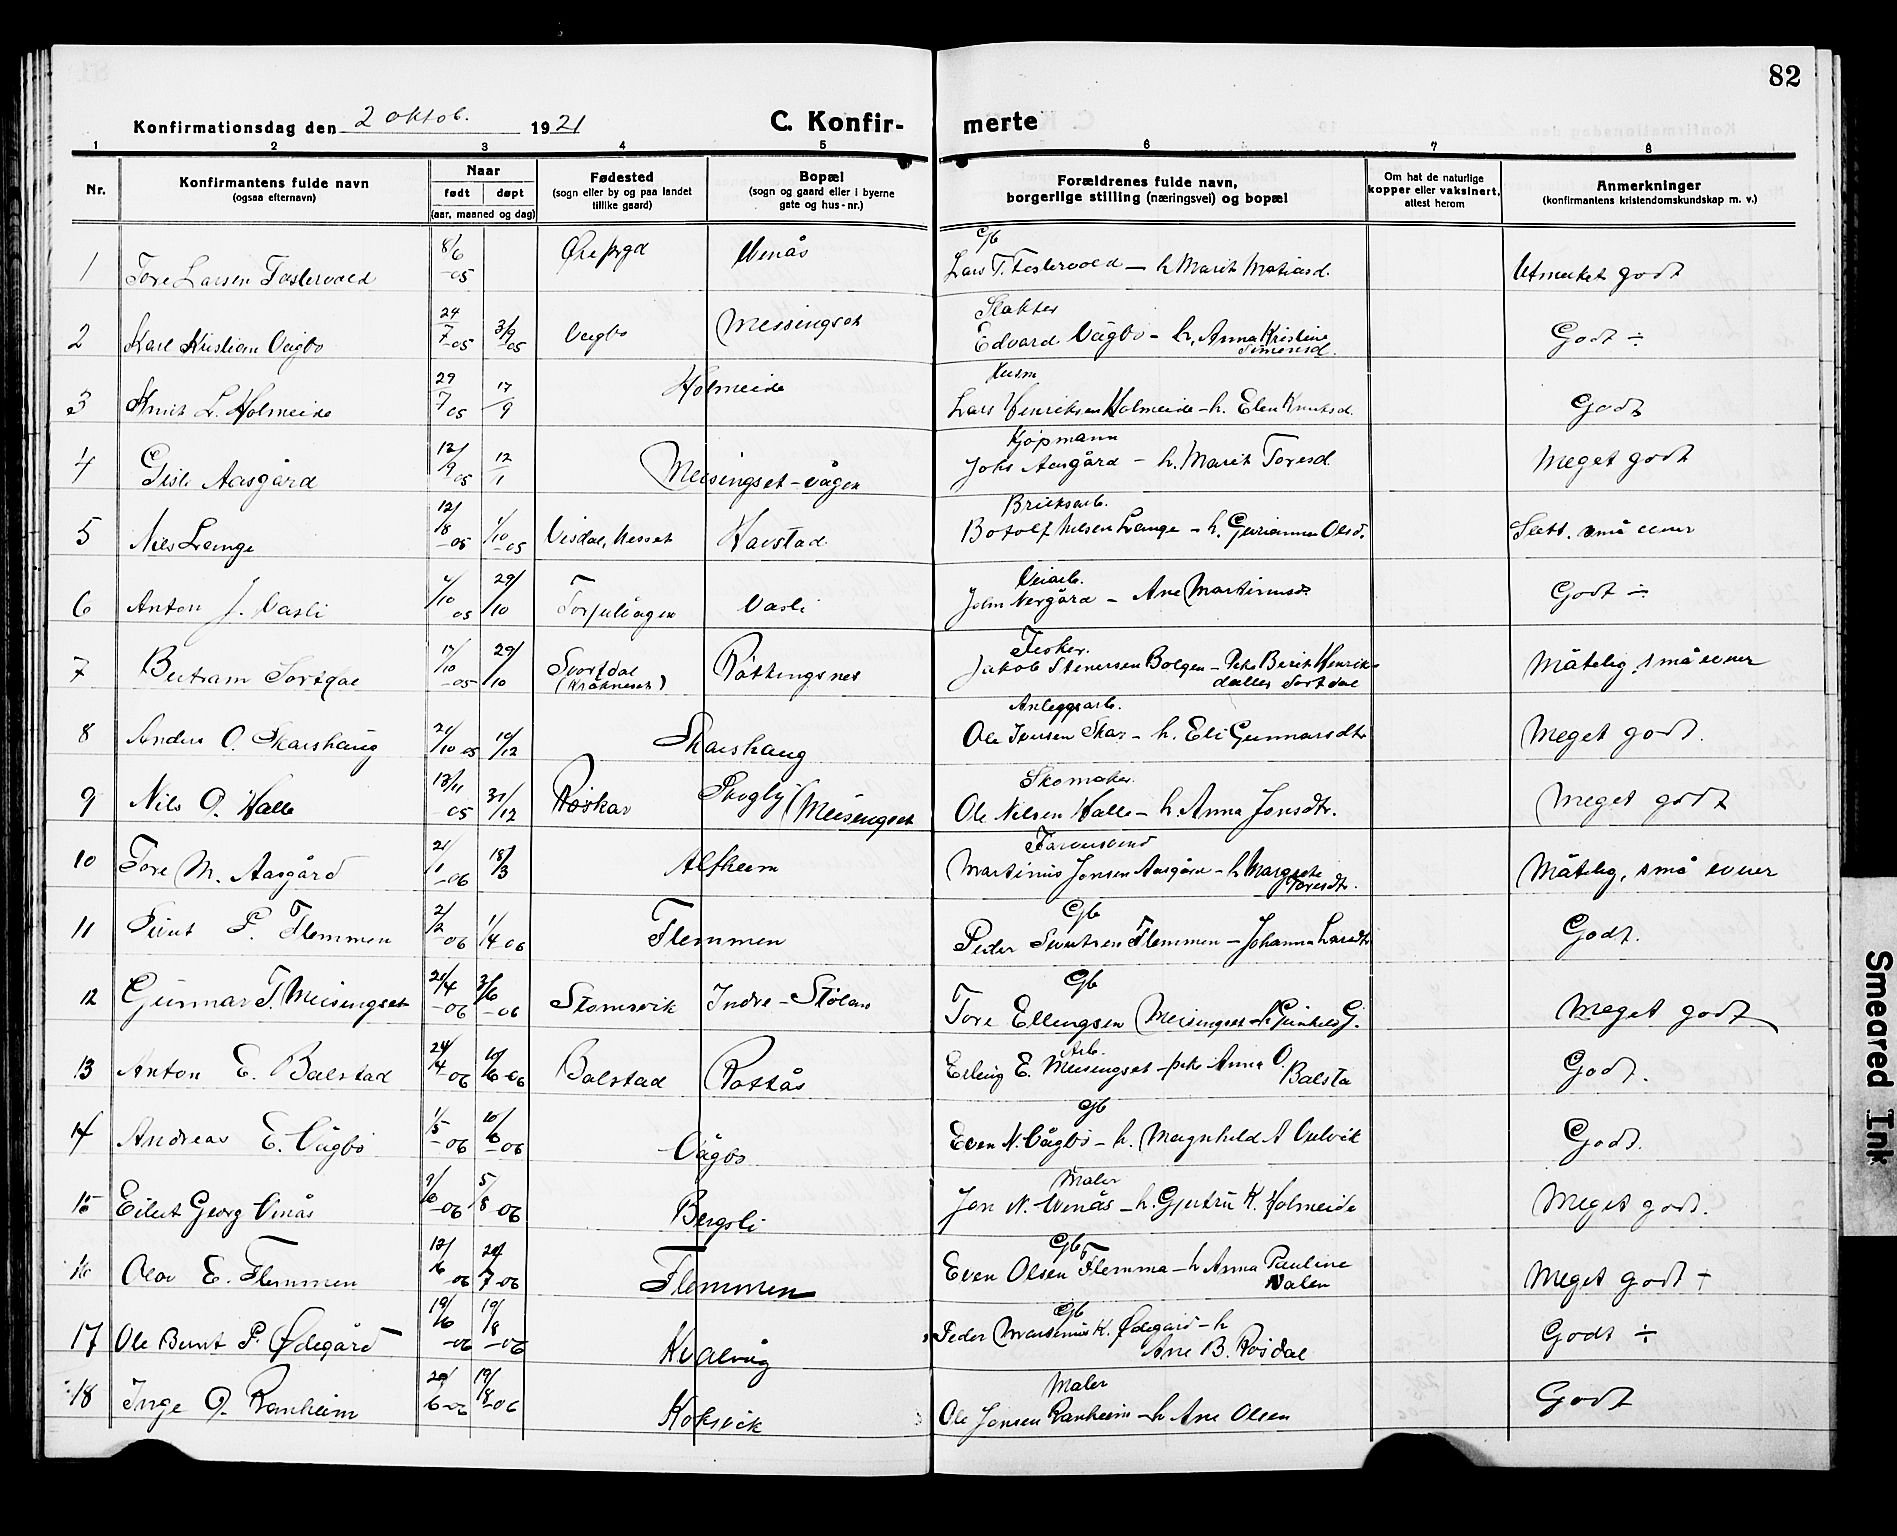 82
Konfirmationsdag den 2 oktob. 1921
C. Konfirmerte
1 2 3 4 5 6 7 8
Nr.
Konfirmantens fulde navn
(ogsaa efternavn)
Naar
født døpt
(aar, maaned og dag)
Fødested
(sogn eller by og paa landet
tillike gaard)
Bopæl
(sogn og gaard eller i byerne
gate og hus-nr.)
Forældrenes fulde navn,
borgerlige stilling (næringsvei) og bopæl
Om hat de naturlige
kopper eller vaksinert,
attest herom
Anmerkninger
(konfirmantens kristendomskundskap m. v.)
1 Tore Larsen Fostervold 8/6 -05 Øre prgd Venås Gb Lars T. Fostervold - h. Marit Matiasd. Utmerket godt
2 Karl Kristian Vågbø 24/7-05 3/9-05 Vågbø Meisingset Slakter Edvard Vågbø - h. Anna Kristine Simonsd. Godt ÷
3 Knut L. Holmeide 29/7 05 17/9 Holmeide Husm Lars Henriksen Holmeide - h. Elen Knutsd. Godt
4 Gisle Aasgård 12/9 05 12/1 Meisingset-vågen Kjøpmann Johs Aasgård - h. Marit Toresd. Meget godt
5 Nils Lange 12/8 -05 1/10 -05 Visdal, Nesset Harstad Bruksarb. Botolf Nilsen Lange - h. Gurianna Olsd. Slett. små evner
6 Anton J. Vasli 4/10 05 29/10 Torjulvågen Vasli Veiarb. John Nergård - Ane Martinusd. Godt ÷
7 Bertram Sortdal 17/10 -05 29/10 Svortdal (Kråkneset) Røttingsnes Fisker. Jakob Stenersen Bolgen - Pike Berit Henriksdatter Sortdal Måtelig, små evner
8 Anders O. Skarshaug 21/10 05 10/12 Skarshaug Anleggsarb. Ole Iversen Skar - h. Eli Gunnarsdtr Meget godt.
9 Nils O. Halle 13/11 05 31/12 Røskar Skogly (Meisingset Skomaker Ole Nilsen Halle - h. Anna Jonsdtr. Meget godt
10 Tore M. Aasgård 21/1 -06 18/3 Alfheim Martinus Jonsen Aasgård - h Margrete Toresdtr. Måtelig, små evner
11 Sivert P. Flemmen 2/2 -06 1/4-06 Flemmen Gb Peder Sivertsen Flemmen - Johanna Larsdtr Godt.
12 Gunnar T. Meisingset 21/4 -06 3/6 -06 Stomsvik Indre-Stølan Gb Tore Ellingsen Meisingset - h Gunhild G. Meget godt
13 Anton E. Balstad 24/4 06 10/6-06 Balstad Røttås Arb. Erling E. Meisingset - pike Anna O. Balsta Godt.
14 Andreas E. Vågbø 1/5 -06 10/6 -06 Vågbø Gb Even N. Vågbø - h. Magnhild A Vulvik Godt.
15 Eilert Georg Vinås 9/6 -06 5/8 -06 Bergsli Maler Jon N. Venås - h. Gjertru K. Holmeide Meget godt.
16 Olav E. Flemmen 12/6 -06 29/7-06 Flemmen Gb Even Olsen Flemma - h Anna Pauline Valen Meget godt ÷
17 Ole Bernt P. Ødegård 19/6 -06 19/8 -06 Kvalvåg Gb Peder Marsenius K. Ødegård - h Ane B. Røsdal Godt ÷
18 Inge O. Ranheim 29/6-06 19/8-06 Koksvik Maler Ole Jonsen Ranheim - h Ane Olsen Godt
Smeared Ink